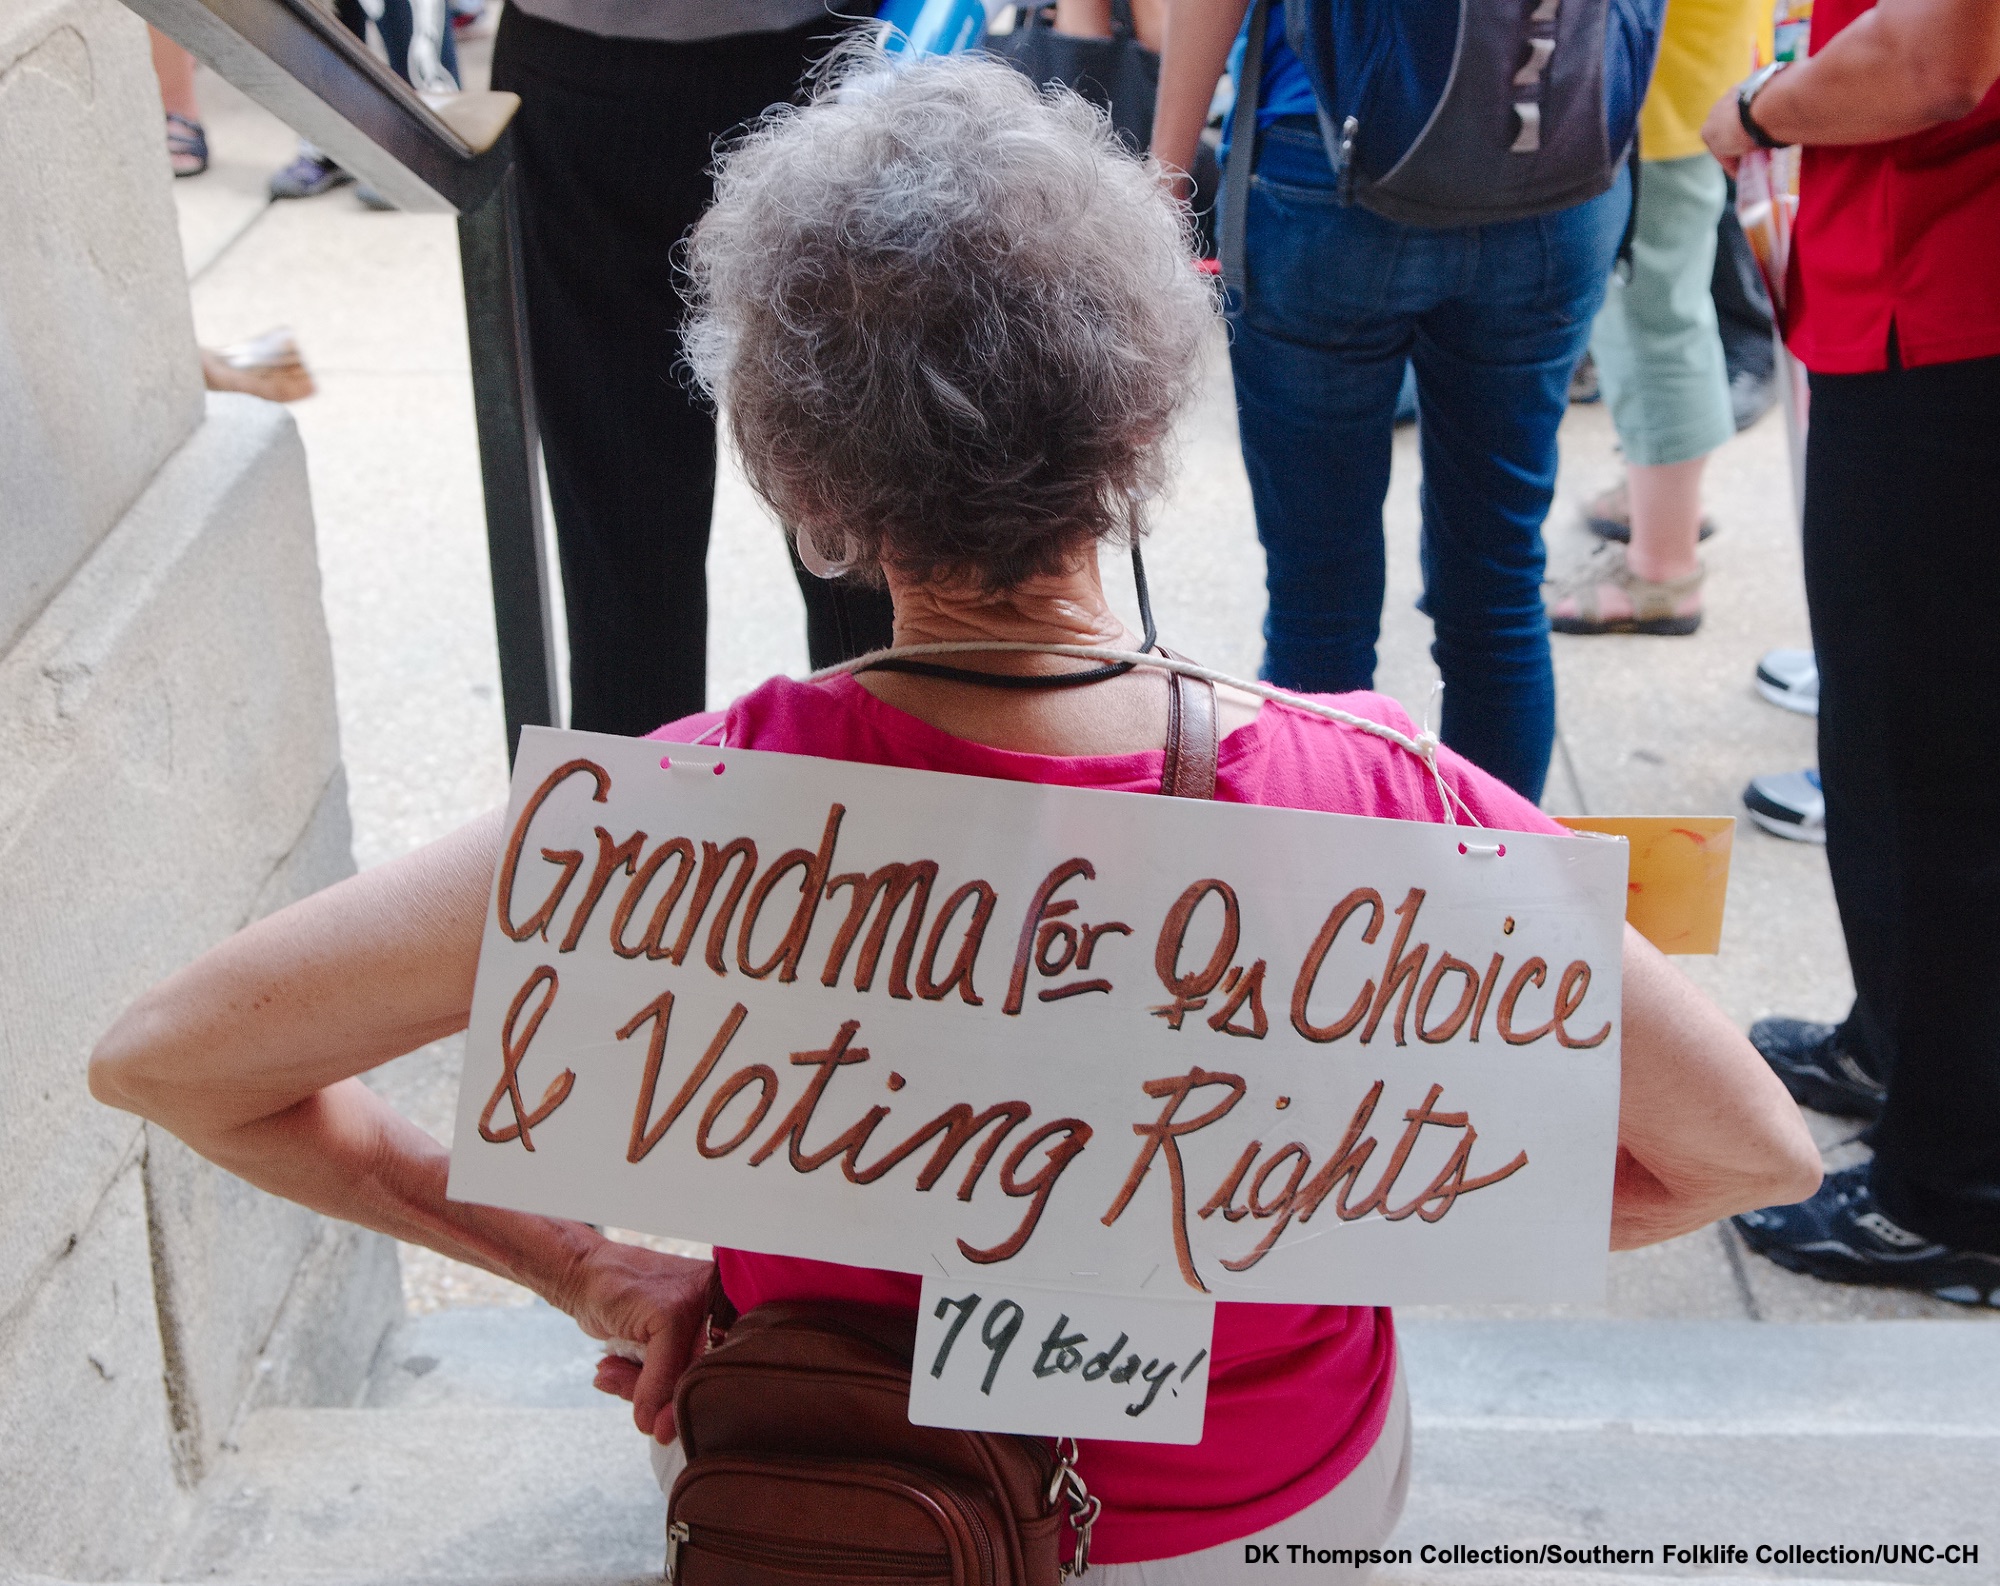 Grandma for ♀'s Choice
& Voting Rights
79 today!
DK Thompson Collection/Southern Folklife Collection/UNC-CH